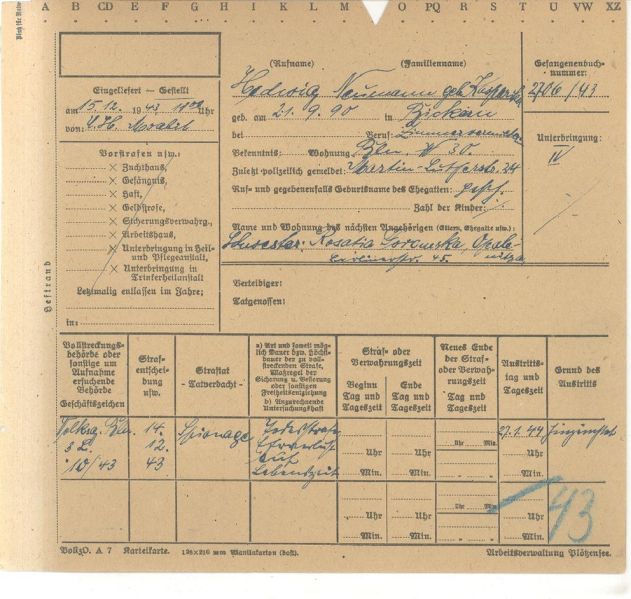 A B CD E F G H I K L M O PQ R S T U VW XZ
Platz für Reiter
Heftrand
(Rufname) (Familienname)
Hedwig Neumann geb.
geb. am 21.9.90 in
bei Beruf:
Bekenntnis: Wohnung Bln. W 30.
Zuletzt polizeilich gemeldet: Martin-Lutherstr. 24
Ruf- und gegebenenfalls Geburtsname des Ehegatten: gesch.
Zahl der Kinder: ·/.
Name und Wohnung des nächsten Angehörigen (Eltern, Ehegatte usw.):
Schwester: Rosalia
45.
Gefangenenbuch-
nummer:
2706/43
Unterbringung:
IV
Eingeliefert — Gestellt
am 15.12. 1943 Uhr
von: U.H. Moabit
Vorstrafen usw.:
× Zuchthaus,
× Gefängnis,
× Haft,
× Geldstrafe,
× Sicherungsverwahrg.,
× Arbeitshaus,
× Unterbringung in Heil-
und Pflegeanstalt,
× Unterbringung in
Trinkerheilanstalt
Letztmalig entlassen im Jahre:
in:
Verteidiger:
Tatgenossen:
Vollstreckungs-
behörde oder
sonstige um
Aufnahme
ersuchende
Behörde
Geschäftszeichen
Straf-
entschei-
dung
usw.
Straftat
- Tatverdacht -
a) Art und soweit mög-
lich Dauer bzw. Höchst-
dauer der zu voll-
streckenden Strafe,
Maßregel der
Sicherung u. Besserung
oder sonstigen
Freiheitsentziehung
b) Anzurechnende
Untersuchungshaft
Straf- oder
Verwahrungszeit
Beginn
Tag und
Tageszeit
Ende
Tag und
Tageszeit
Neues Ende
der Straf-
oder Verwah-
rungszeit
Tag und
Tageszeit
Austritts-
tag und
Tageszeit
Grund des
Austritts
14.
12.
43
Spionage
Todesstrafe
Ehrverlust
auf
Lebenszeit
Uhr
Min.
Uhr
Min.
Uhr Min.
27.1.44
Uhr
Min.
Uhr
Min.
Uhr
Min.
Uhr Min.
Uhr
Min.
43
VollzO. A 7 Karteikarte. 148×210 mm Manilakarton (hart).
Arbeitsverwaltung Plötzensee.